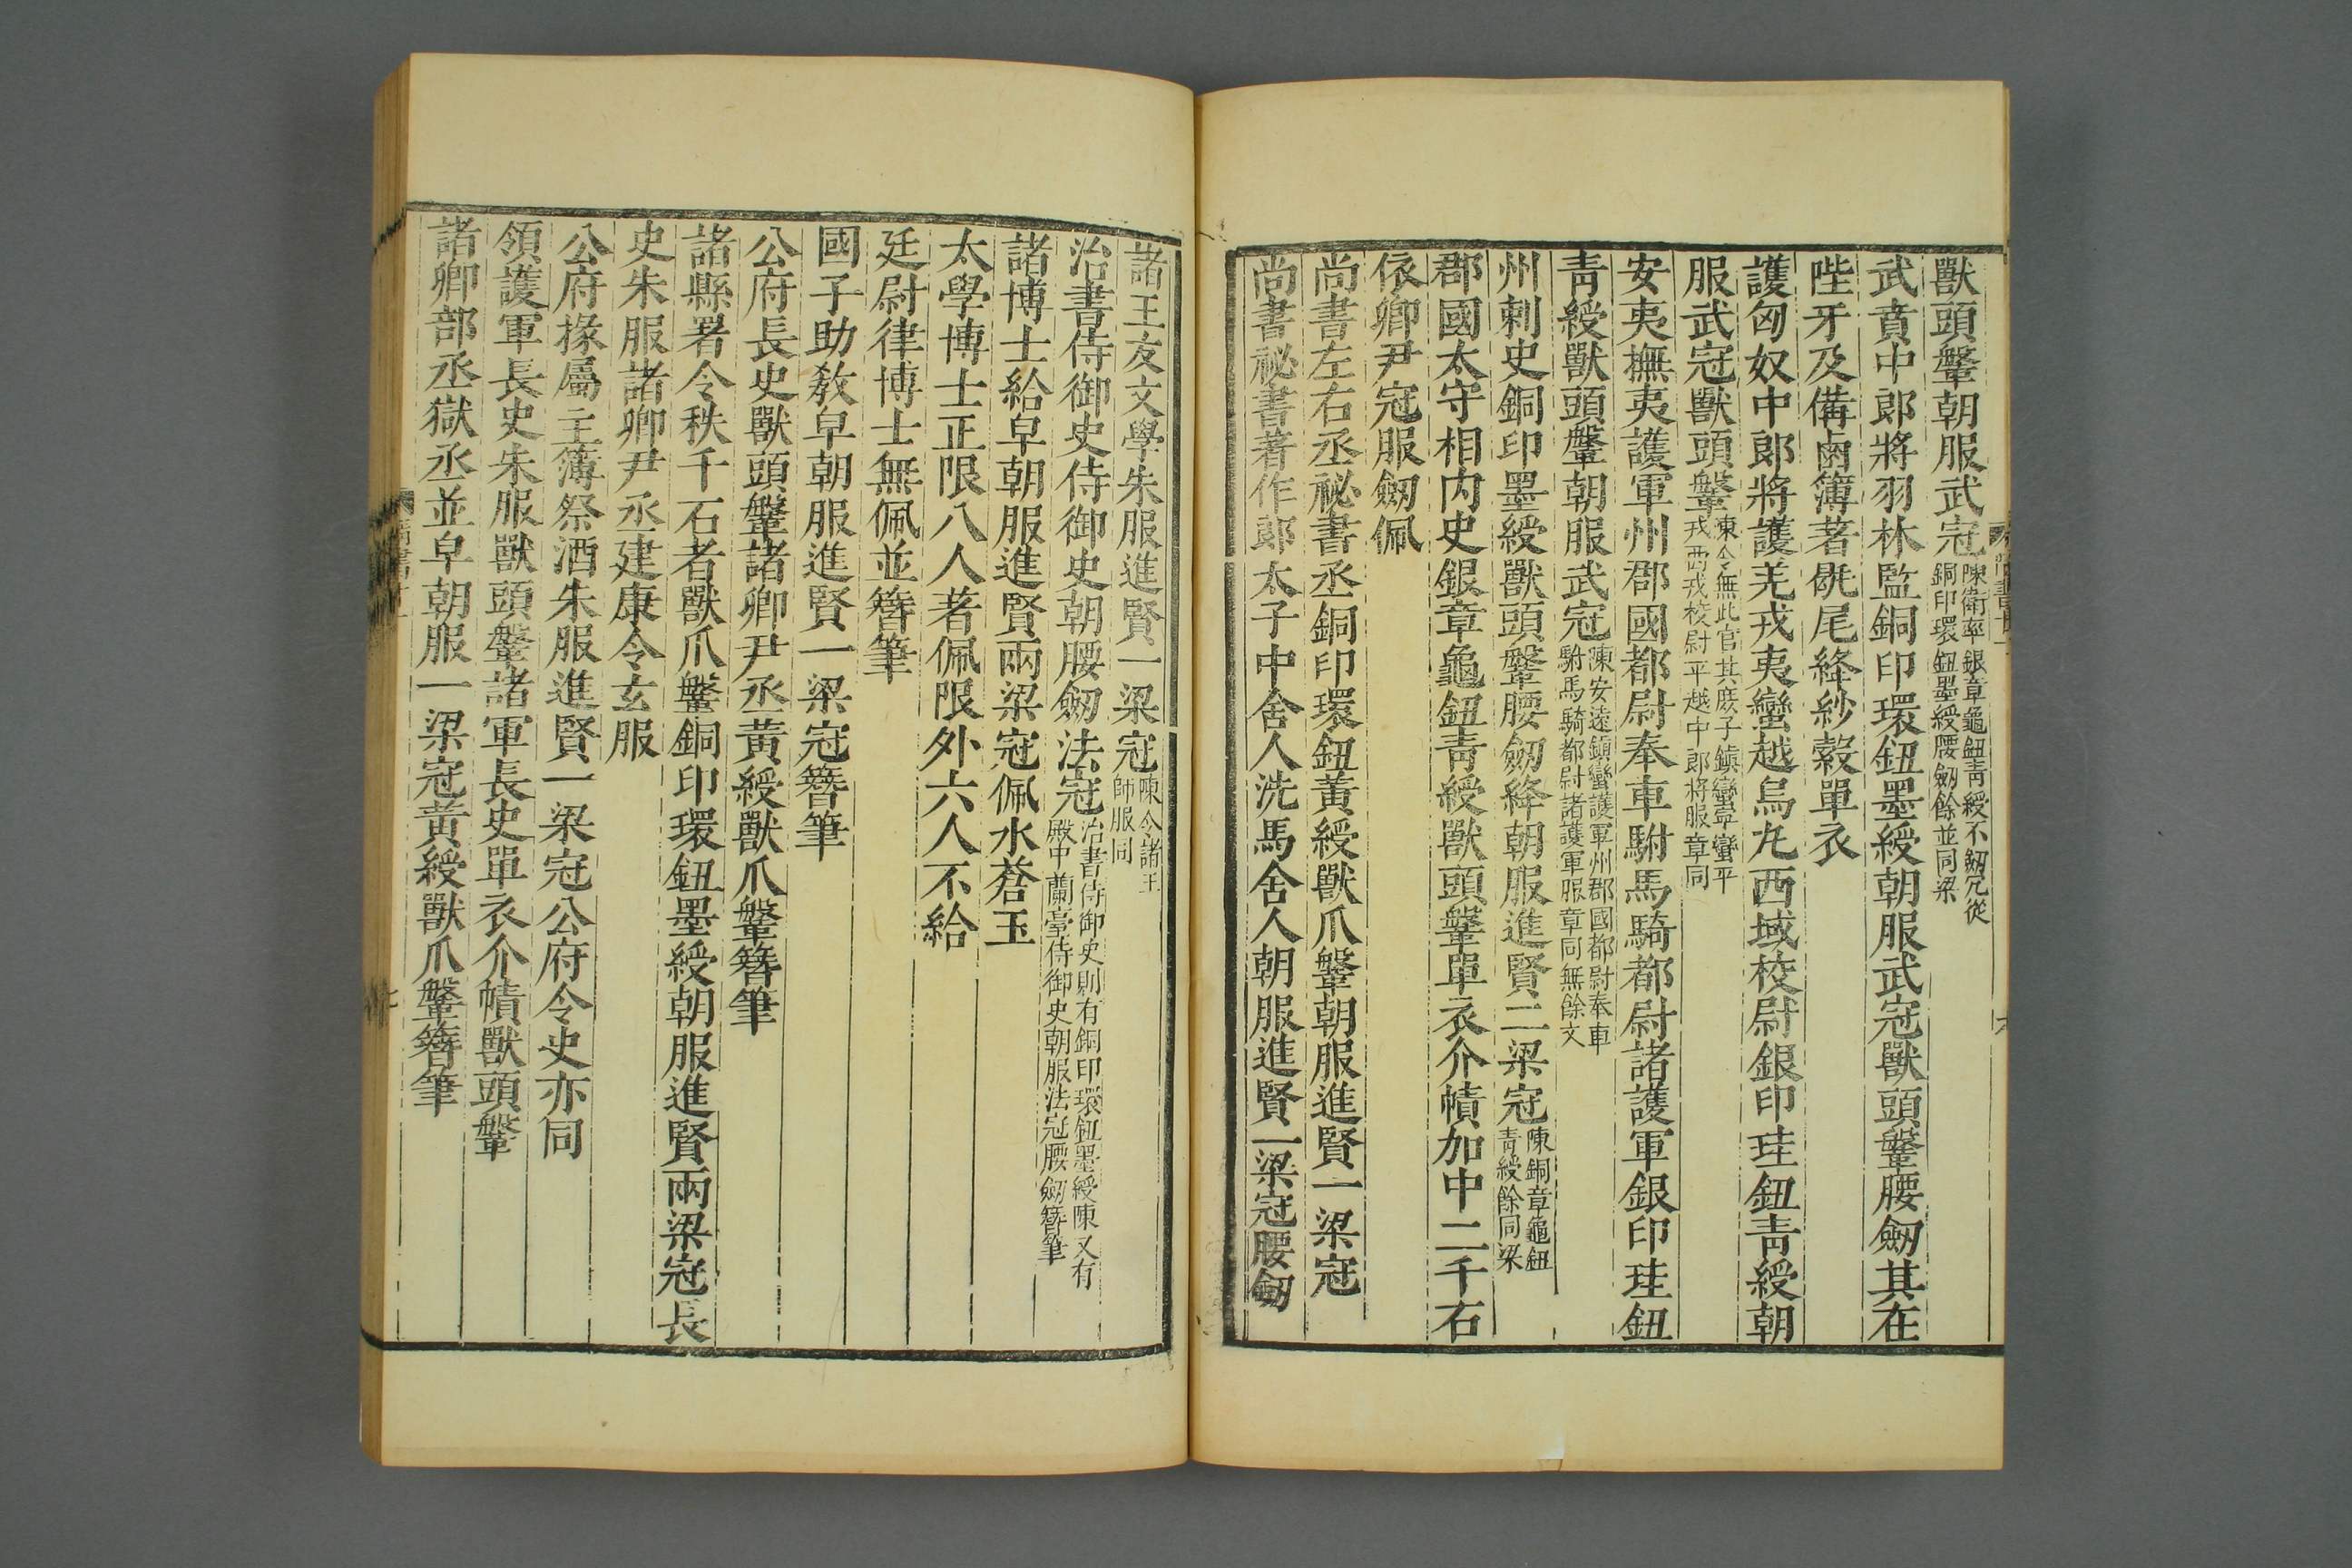 獸頭鞶朝服武冠陳衛率銀章龜鈕青綬不劒冗從銅印環鈕墨綬腰劒餘並同梁
武賁中郎將羽林監銅印環鈕墨綬朝服武冠獸頭鞶腰劒其在
陛牙及備鹵簿著鶡尾絳紗縠單衣
護匈奴中郎將護羌戎夷蠻越烏丸西域校尉銀印珪鈕青綬朝
服武冠獸頭鞶陳令無此官其庶子鎮蠻寧蠻平戎西戎校尉平越中郎將服章同
安夷撫夷護軍州郡國都尉奉車駙馬騎都尉諸護軍銀印珪鈕
青綬獸頭鞶朝服武冠陳安遠鎮蠻護軍州郡國都尉奉車駙馬騎都尉諸護軍服章同無餘文
州刺史銅印墨綬獸頭鞶腰劒絳朝服進賢二梁冠陳銅章龜鈕青綬餘同梁
郡國太守相内史銀章龜鈕青綬獸頭鞶單衣介幘加中二千石
依卿尹冠服劒佩
尚書左右丞祕書丞銅印環鈕黃綬獸爪鞶朝服進賢一梁冠
尚書祕書著作郎太子中舍人洗馬舍人朝服進賢一梁冠腰劒
諸王友文學朱服進賢一梁冠陳令諸王師服同
治書侍御史侍御史朝服腰劒法冠治書侍御史則有銅印環鈕墨綬陳又有殿中蘭臺侍御史朝服法冠腰劒簪筆
諸博士給皁朝服進賢兩梁冠佩水蒼玉
太學博士正限八人著佩限外六人不給
廷尉律博士無佩並簪筆
國子助教皁朝服進賢一梁冠簪筆
公府長史獸頭鞶諸卿尹丞黃綬獸爪鞶簪筆
諸縣署令秩千石者獸爪鞶銅印環鈕墨綬朝服進賢兩梁冠長
史朱服諸卿尹丞建康令玄服
公府掾屬主簿祭酒朱服進賢一梁冠公府令史亦同
領護軍長史朱服獸頭鞶諸軍長史單衣介幘獸頭鞶
諸卿部丞獄丞並皁朝服一梁冠黃綬獸爪鞶簪筆
七